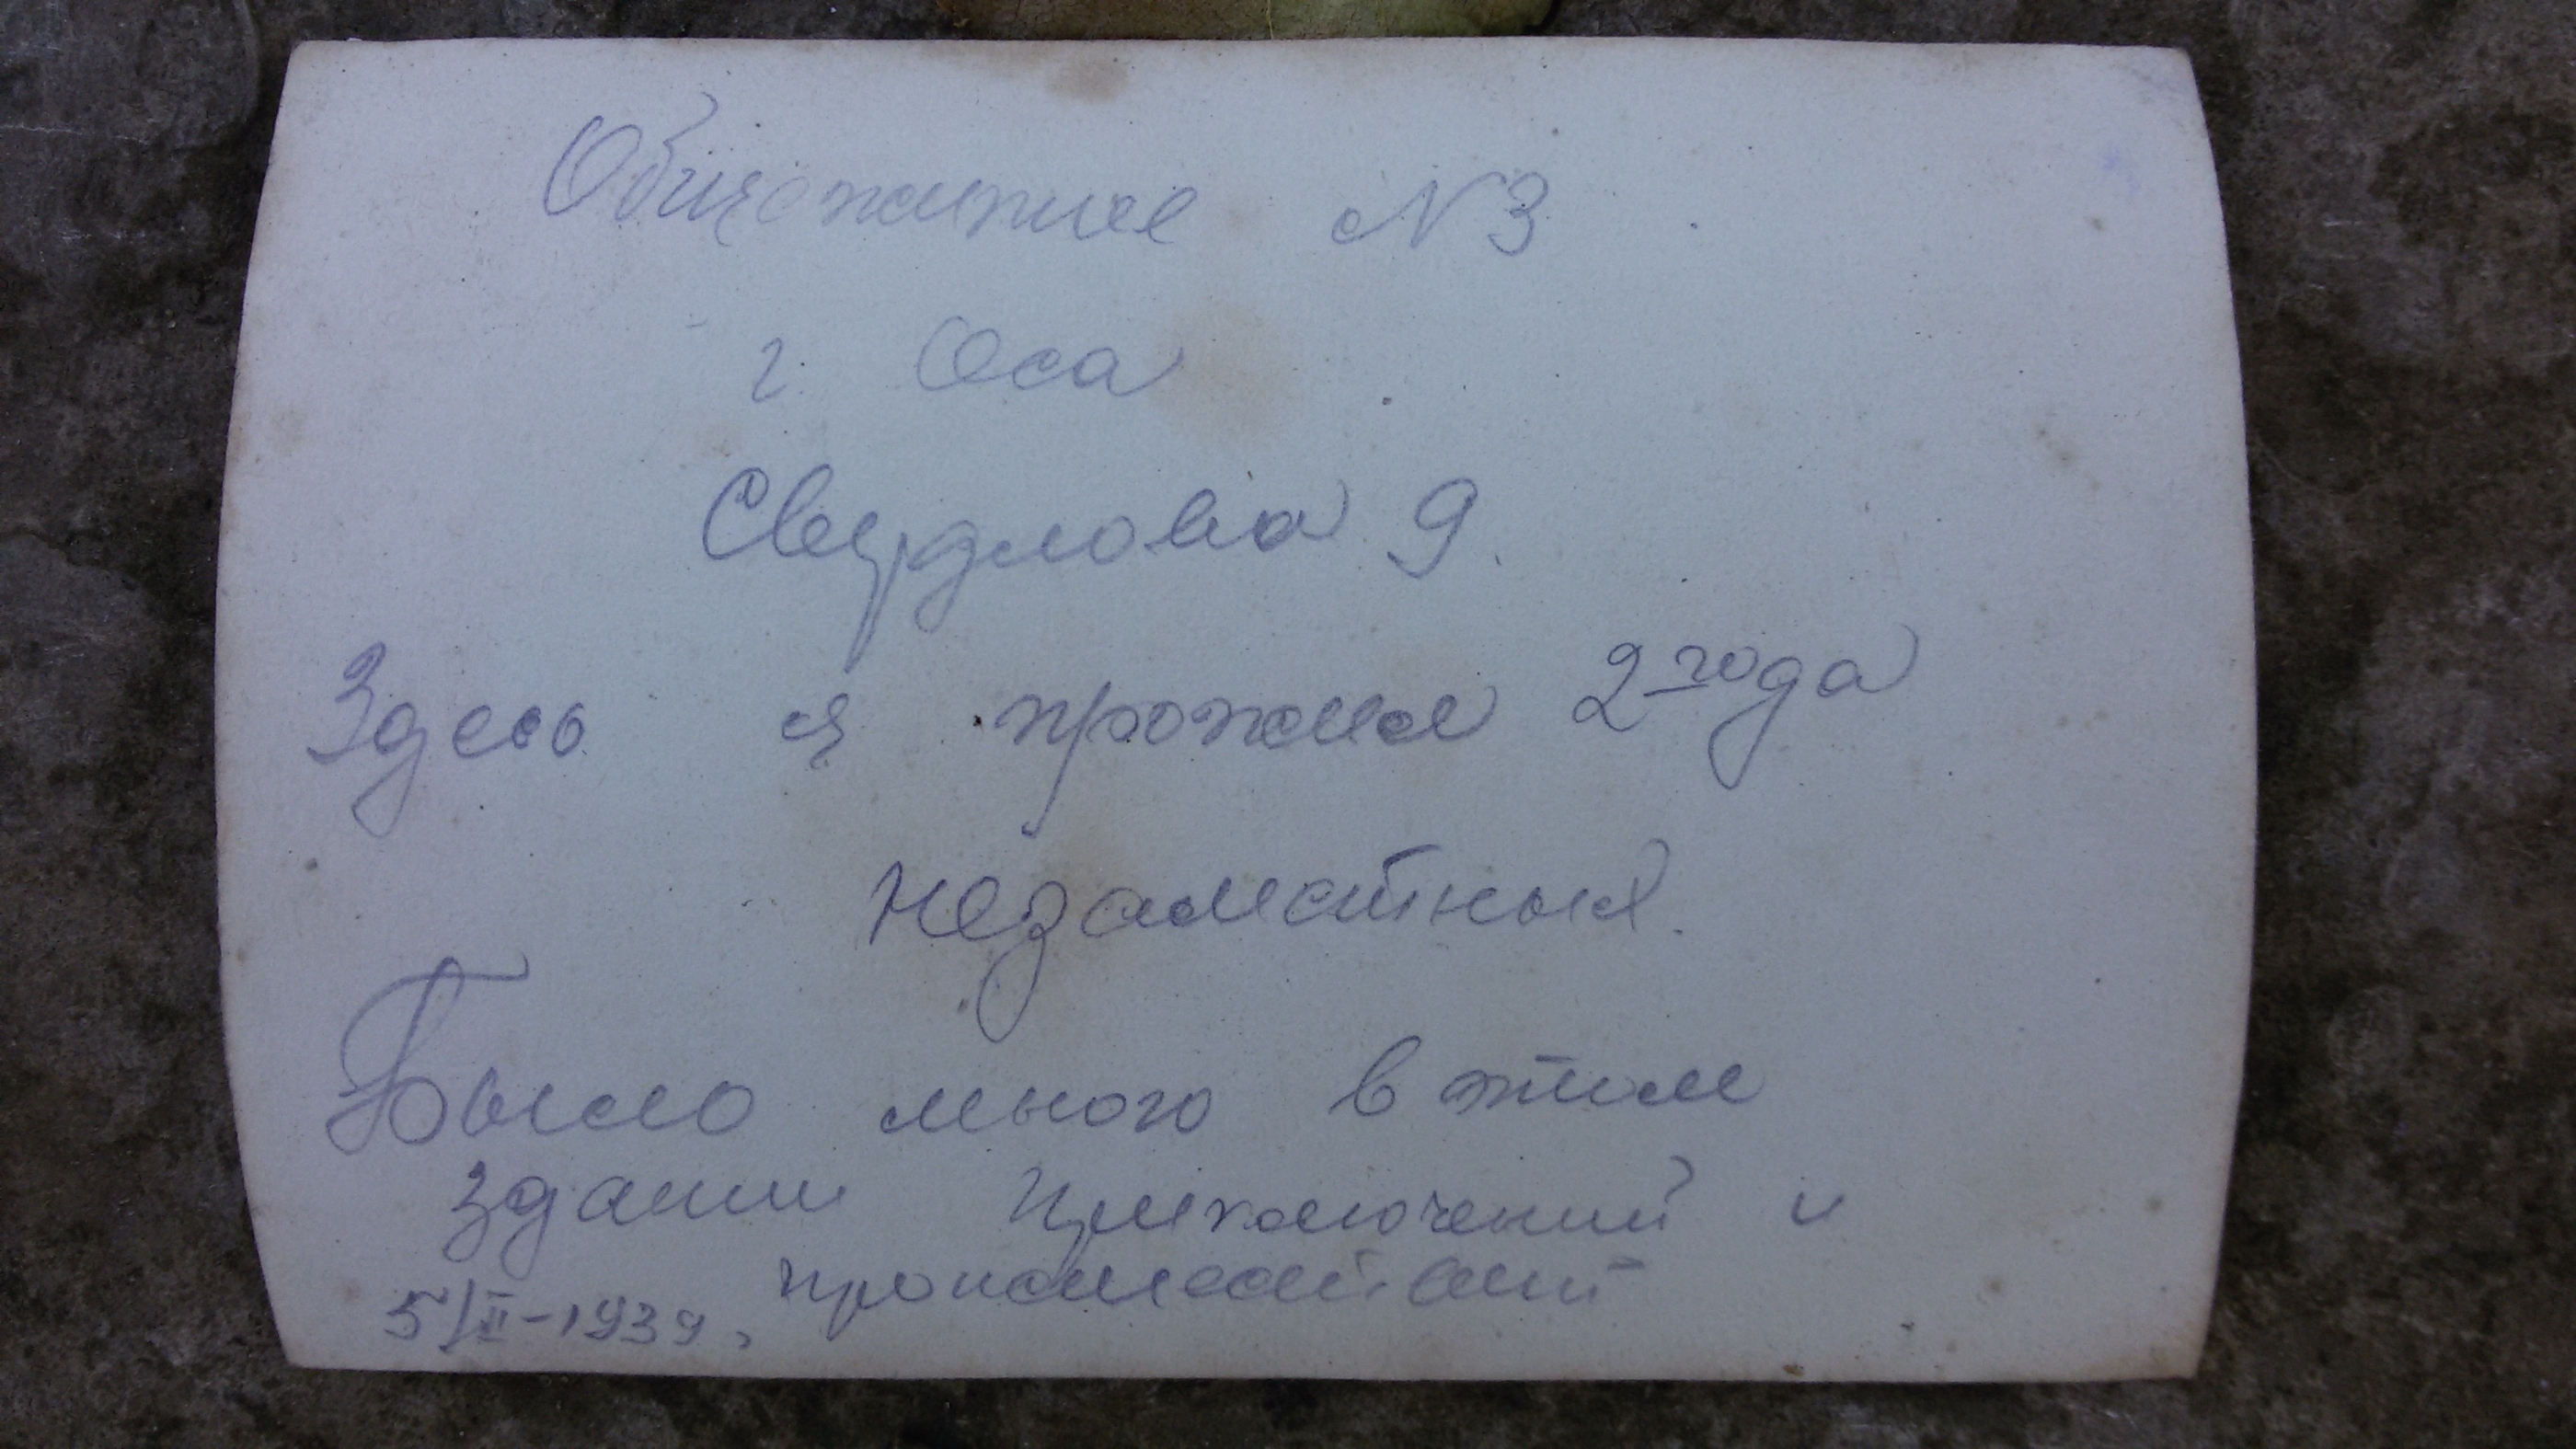 Общежитие №3
г. Оса
Свердлова 9.
Здесь я прожил 2 года
незаметных.
Было много в этом
здании приключений и
происшествий
5/II-1939,